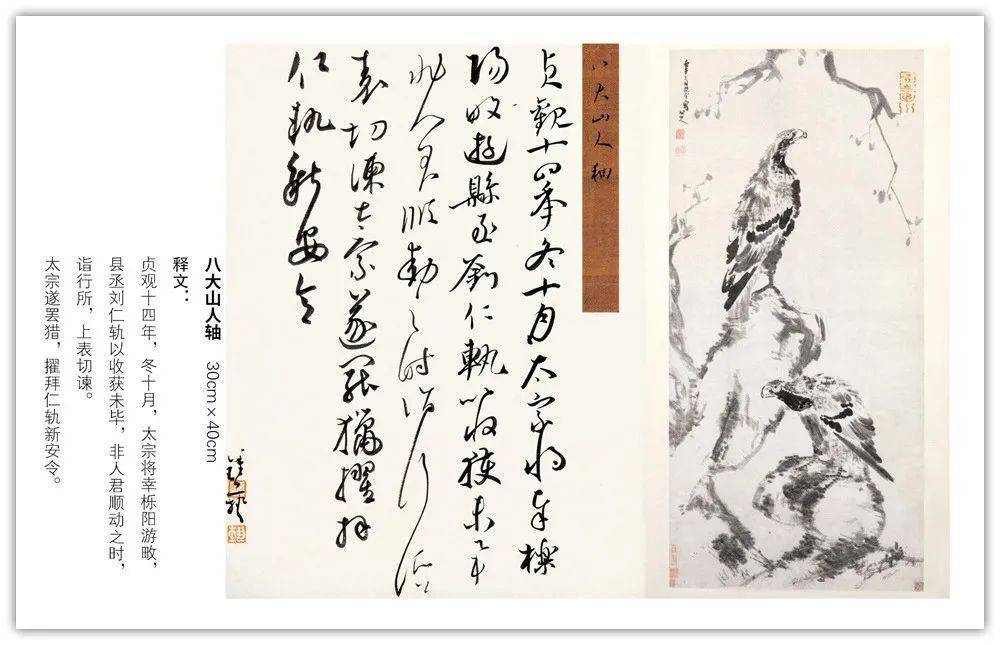 八大山人軸
貞觀十四年冬十月太宗將幸櫟
陽畋遊縣丞劉仁軌以收穫未畢
非人君順動之時詣行
表切諫太宗遂罷獵擢拜
仁軌新安令
八大山人轴 30cm×40cm
释文：
贞观十四年，冬十月，太宗将幸栎阳游畋，
县丞刘仁轨以收获未毕，非人君顺动之时，
诣行所，上表切谏。
太宗遂罢猎，擢拜仁轨新安令。